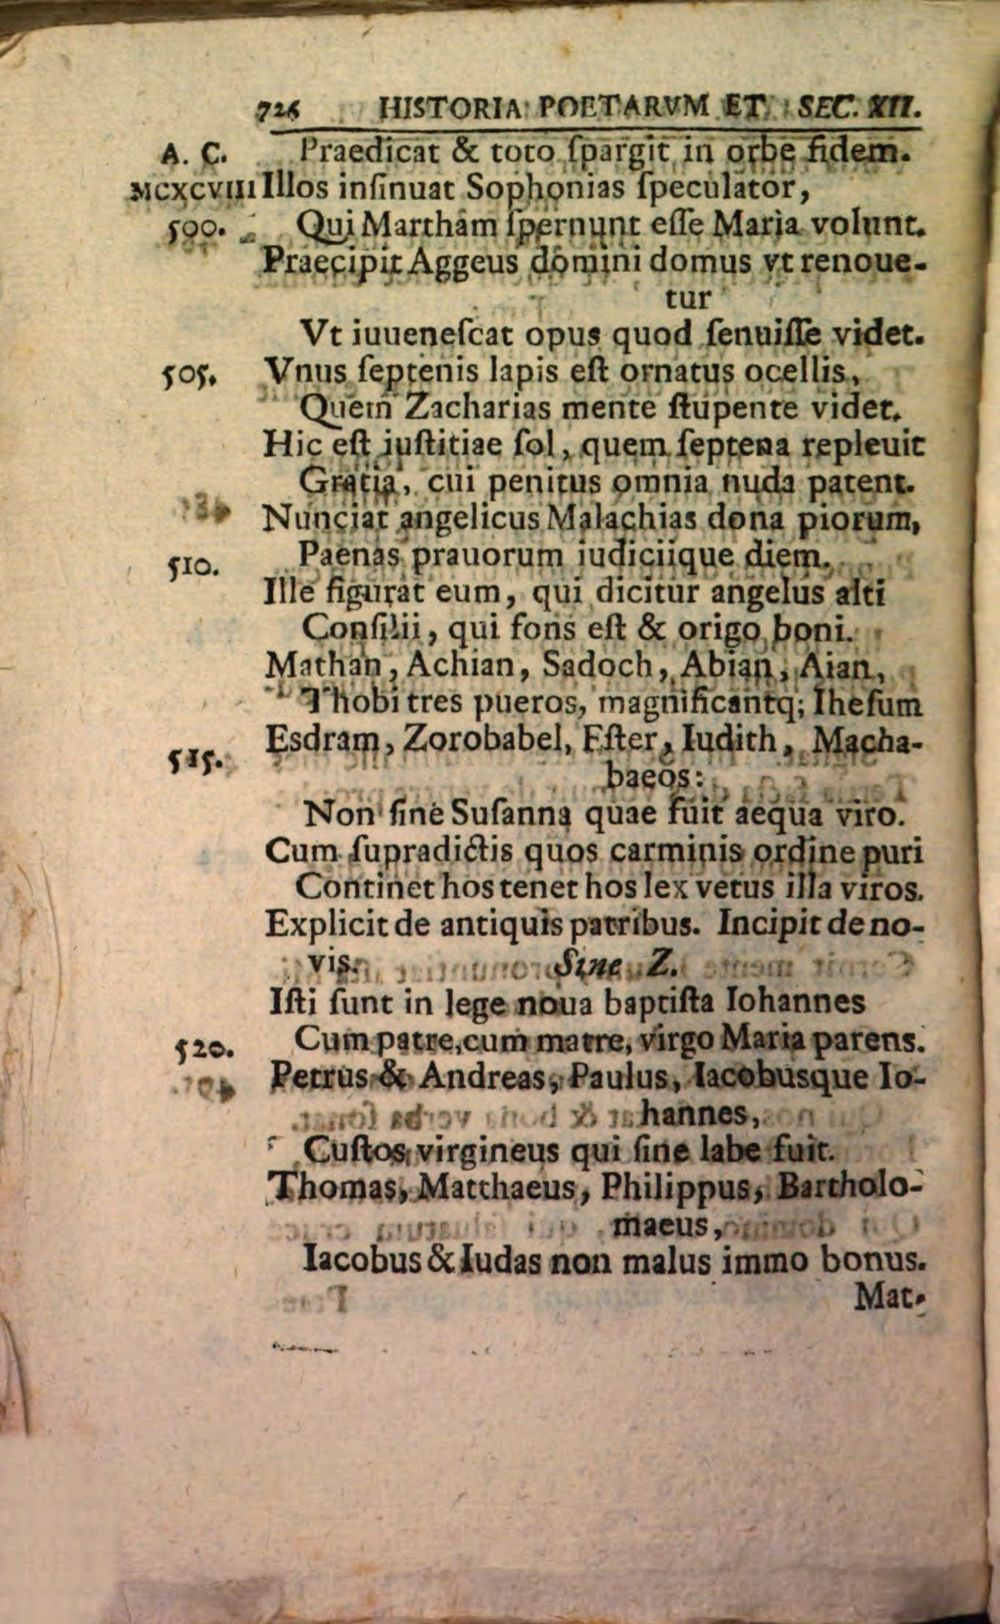 726 HISTORIA POETARVM ET SEC. XII.
A. C. Praedicat & toto ſpargit in orbe fidem.
MCXCVIII Illos inſinuat Sophonias ſpeculator,
500. Qui Martham ſpernunt eſſe Maria volunt.
Praecipit Aggeus domini domus vt renoue-
tur
Vt iuueneſcat opus quod ſenuiſſe videt.
505. Vnus ſeptenis lapis eſt ornatus ocellis,
Quem Zacharias mente ſtupente videt.
Hic eſt iuſtitiae ſol, quem ſeptena repleuit
Gratia, cui penitus omnia nuda patent.
Nunciat angelicus Malachias dona piorum,
510. Paenas prauorum iudiciique diem.
Ille figurat eum, qui dicitur angelus alti
Conſilii, qui fons eſt & origo boni.
Mathan, Achian, Sadoch, Abian, Aian,
Thobi tres pueros, magnificantq; Iheſum
515. Esdram, Zorobabel, Eſter, Iudith, Macha-
baeos:
Non ſine Suſanna quae fuit aequa viro.
Cum ſupradictis quos carminis ordine puri
Continet hos tenet hos lex vetus illa viros.
Explicit de antiquis patribus. Incipit de no-
vis. Sine Z.
Iſti ſunt in lege noua baptiſta Iohannes
520. Cum patre, cum matre, virgo Maria parens.
Petrus & Andreas, Paulus, Iacobusque Io-
hannes,
Cuſtos virgineus qui ſine labe fuit.
Thomas, Matthaeus, Philippus, Bartholo-
maeus,
Iacobus & Iudas non malus immo bonus.
Mat-